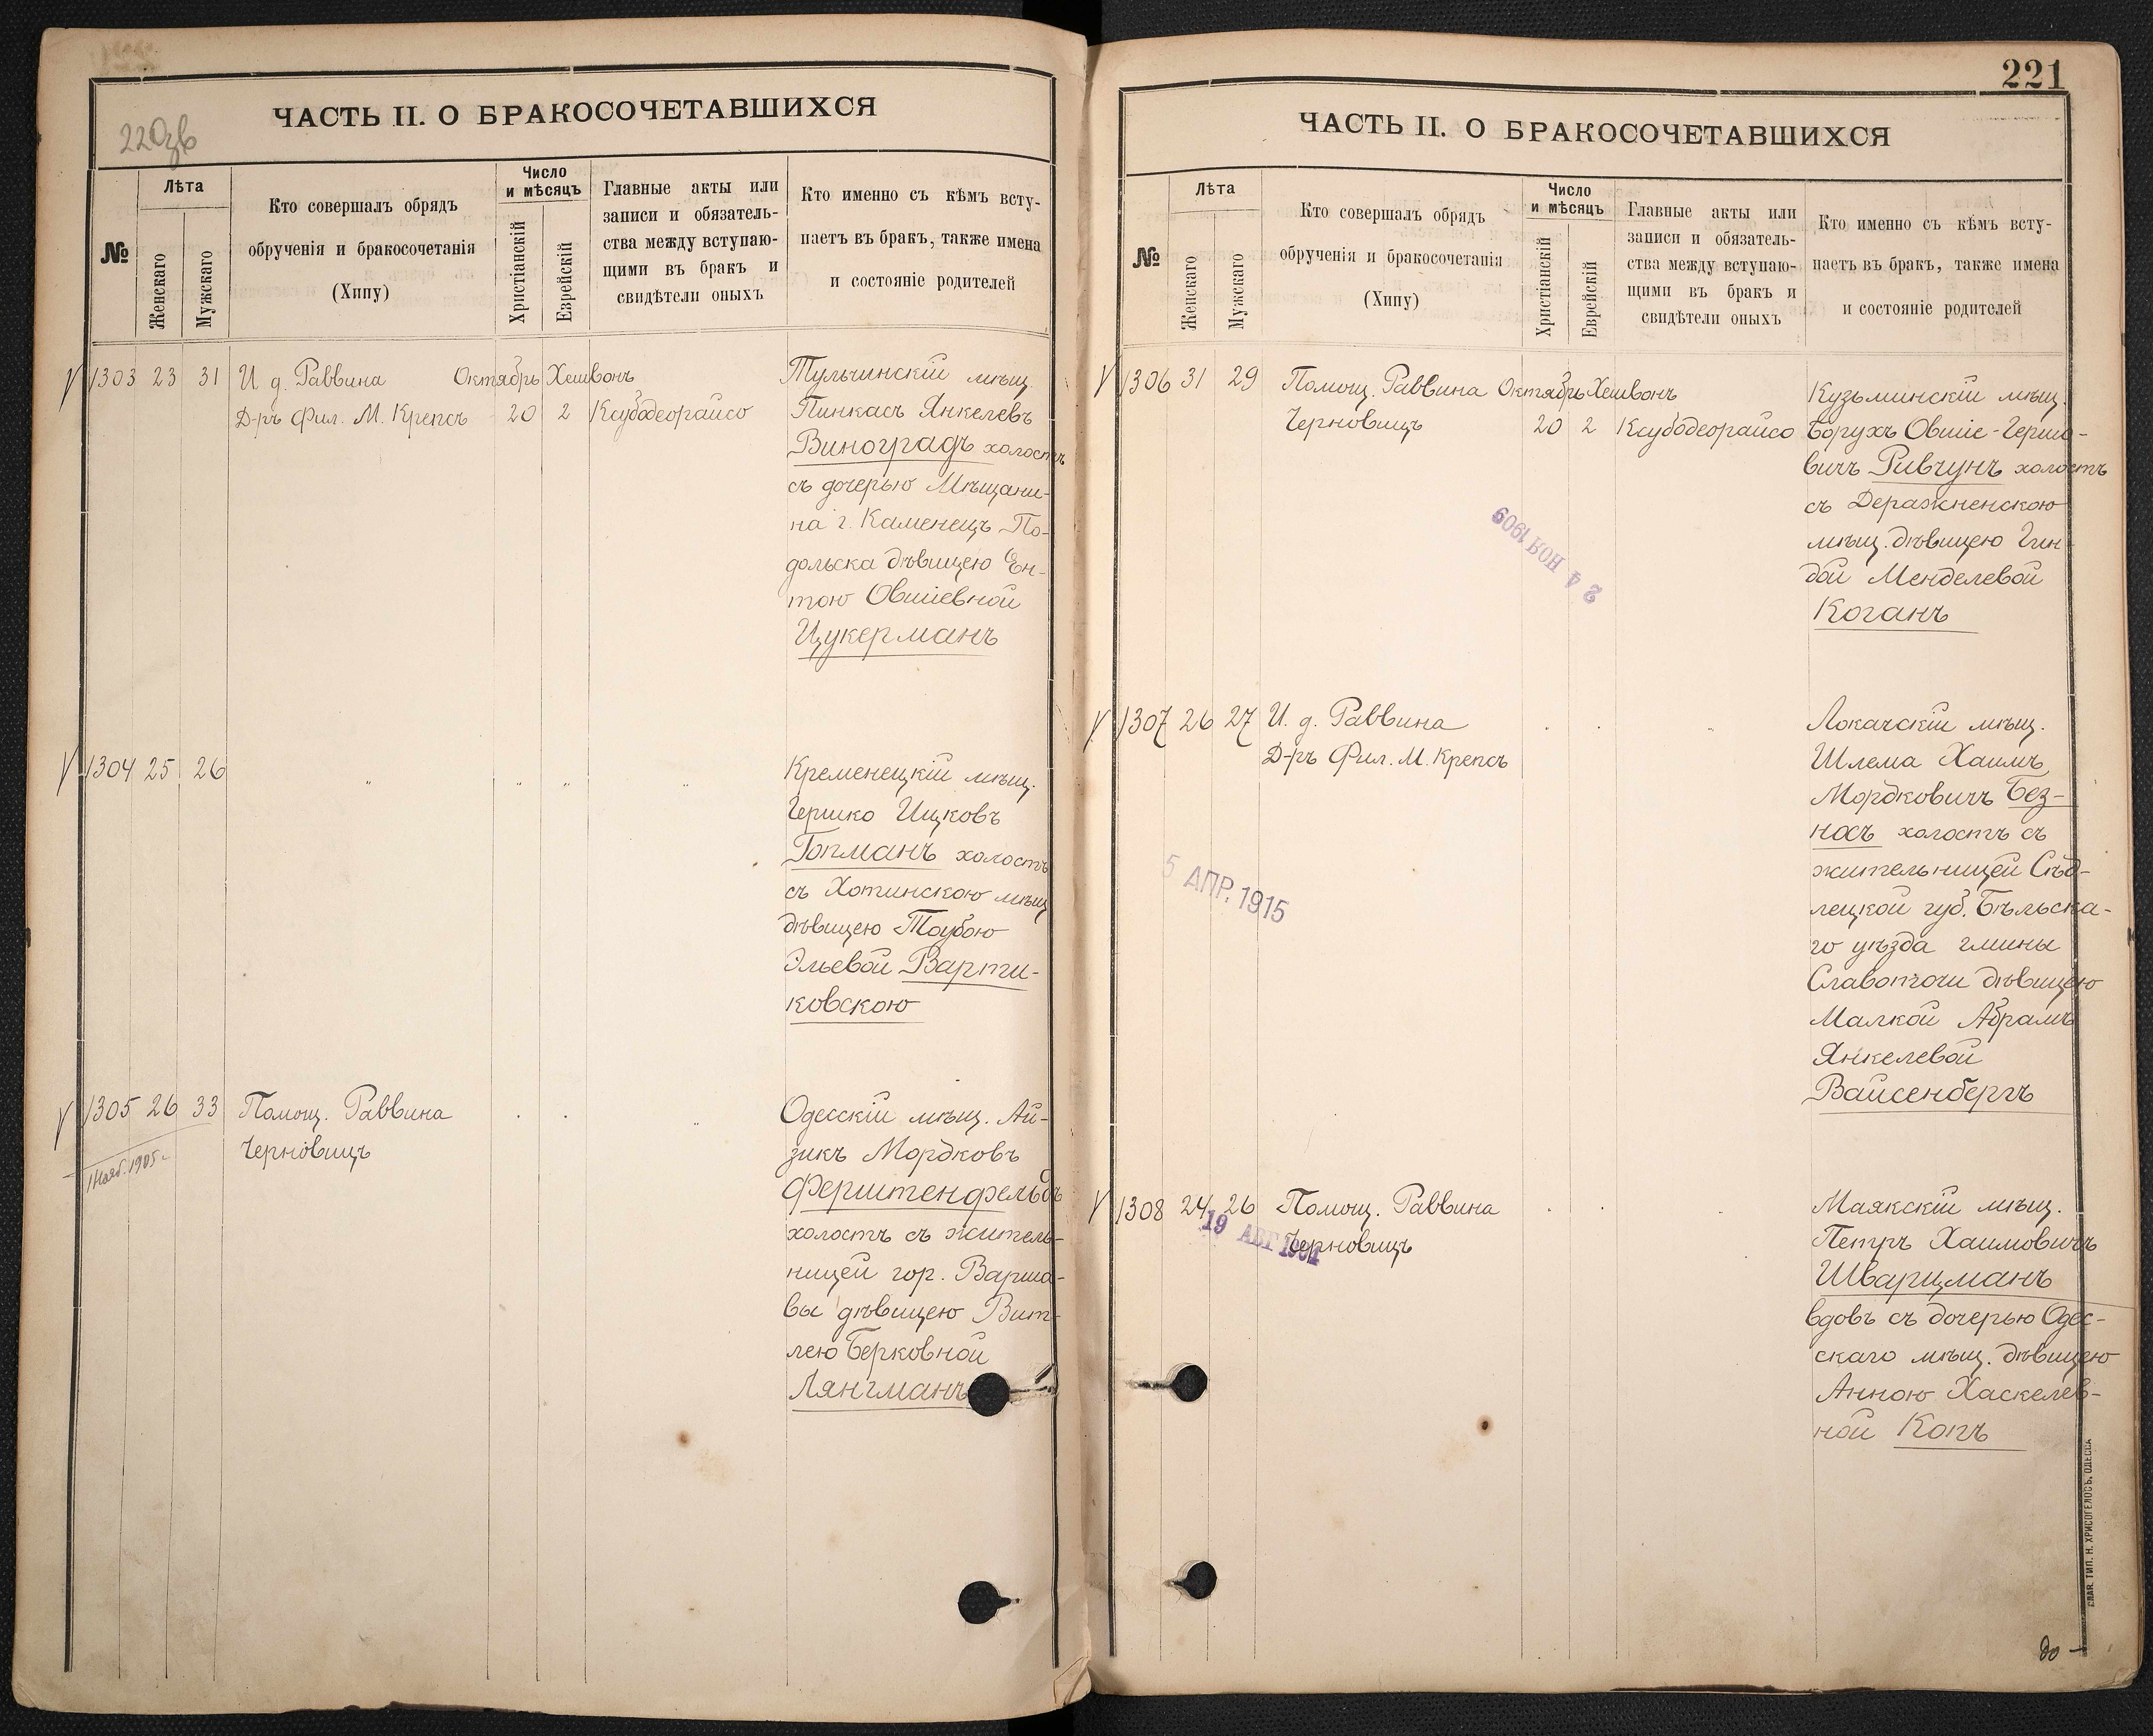 220зв
ЧАСТЬ II. О БРАКОСОЧЕТАВШИХСЯ
№
Лѣта
Женскаго
Мужскаго
Кто совершалъ обрядъ
обрученія и бракосочетанія
(Хипу)
Число
и мѣсяцъ
Христіанскій
Еврейскій
Главные акты или
записи и обязатель-
ства между вступаю-
щими въ бракъ и
свидѣтели оныхъ
Кто именно съ кѣмъ всту-
паетъ въ бракъ, также имена
и состояніе родителей
1303 23 31 И. д. Раввина Октябрь Хешвонъ
Д-ръ Фил. М. Крепсъ 20 2 Ксубодеорайсо
Тульчинскій мѣщ.
Пинкасъ Янкелевъ
Виноградъ холостъ
съ дочерью Мѣщани-
на г. Каменецъ По-
дольска дѣвицею Ен-
тою Овшіевной
Цукерманъ
1304 25 26 " " " "
Кременецкій мѣщ.
Гершко Ицковъ
Гопманъ холостъ
съ Хотинскою мѣщ
дѣвицею Тоубою
Эльевой Варти-
ковскою
1305 26 33 Помощ. Раввина
Черновицъ
1 Нояб. 1905 г.
Одесскій мѣщ. Ай-
зикъ Мордковъ
Ферштенфельдъ
холостъ съ житель-
ницей гор. Варша-
вы дѣвицею Вит-
лею Берковной
Лянгманъ
221
ЧАСТЬ II. О БРАКОСОЧЕТАВШИХСЯ
№
Лѣта
Женскаго
Мужскаго
Кто совершалъ обрядъ
обрученія и бракосочетанія
(Хипу)
Число
и мѣсяцъ
Христіанскій
Еврейскій
Главные акты или
записи и обязатель-
ства между вступаю-
щими въ бракъ и
свидѣтели оныхъ
Кто именно съ кѣмъ всту-
паетъ въ бракъ, также имена
и состояніе родителей
1306 31 29 Помощ. Раввина Октябрь Хешвонъ
Черновицъ 20 2 Ксубодеорайсо
Кузьминскій мѣщ.
Борухъ Овшіе-Гершо-
вичъ Ривчунъ холостъ
съ Деражненскою
мѣщ. дѣвицею Гин-
дой Менделевой
Коганъ
24 НОЯ 1909
1307 26 27 И. д. Раввина
Д-ръ Фил. М. Крепсъ
Локачскій мѣщ.
Шлема Хаимъ
Мордковичъ Без-
носъ холостъ съ
жительницей Сѣд-
лецкой губ. Бѣльска-
го уѣзда гмины
Славоточи дѣвицею
Малкой Абрамъ
Янкелевой
Вайсенбергъ
5 АПР. 1915
1308 24 26 Помощ. Раввина
Черновицъ
19 АВГ
Маякскій мѣщ.
Петръ Хаимовичъ
Шварцманъ
вдовъ съ дочерью Одес-
скаго мѣщ. дѣвицею
Анною Хаскелев-
ной Копъ
СЛАВ. ТИП. Н. ХРИСОГЕЛОСЪ, ОДЕССА